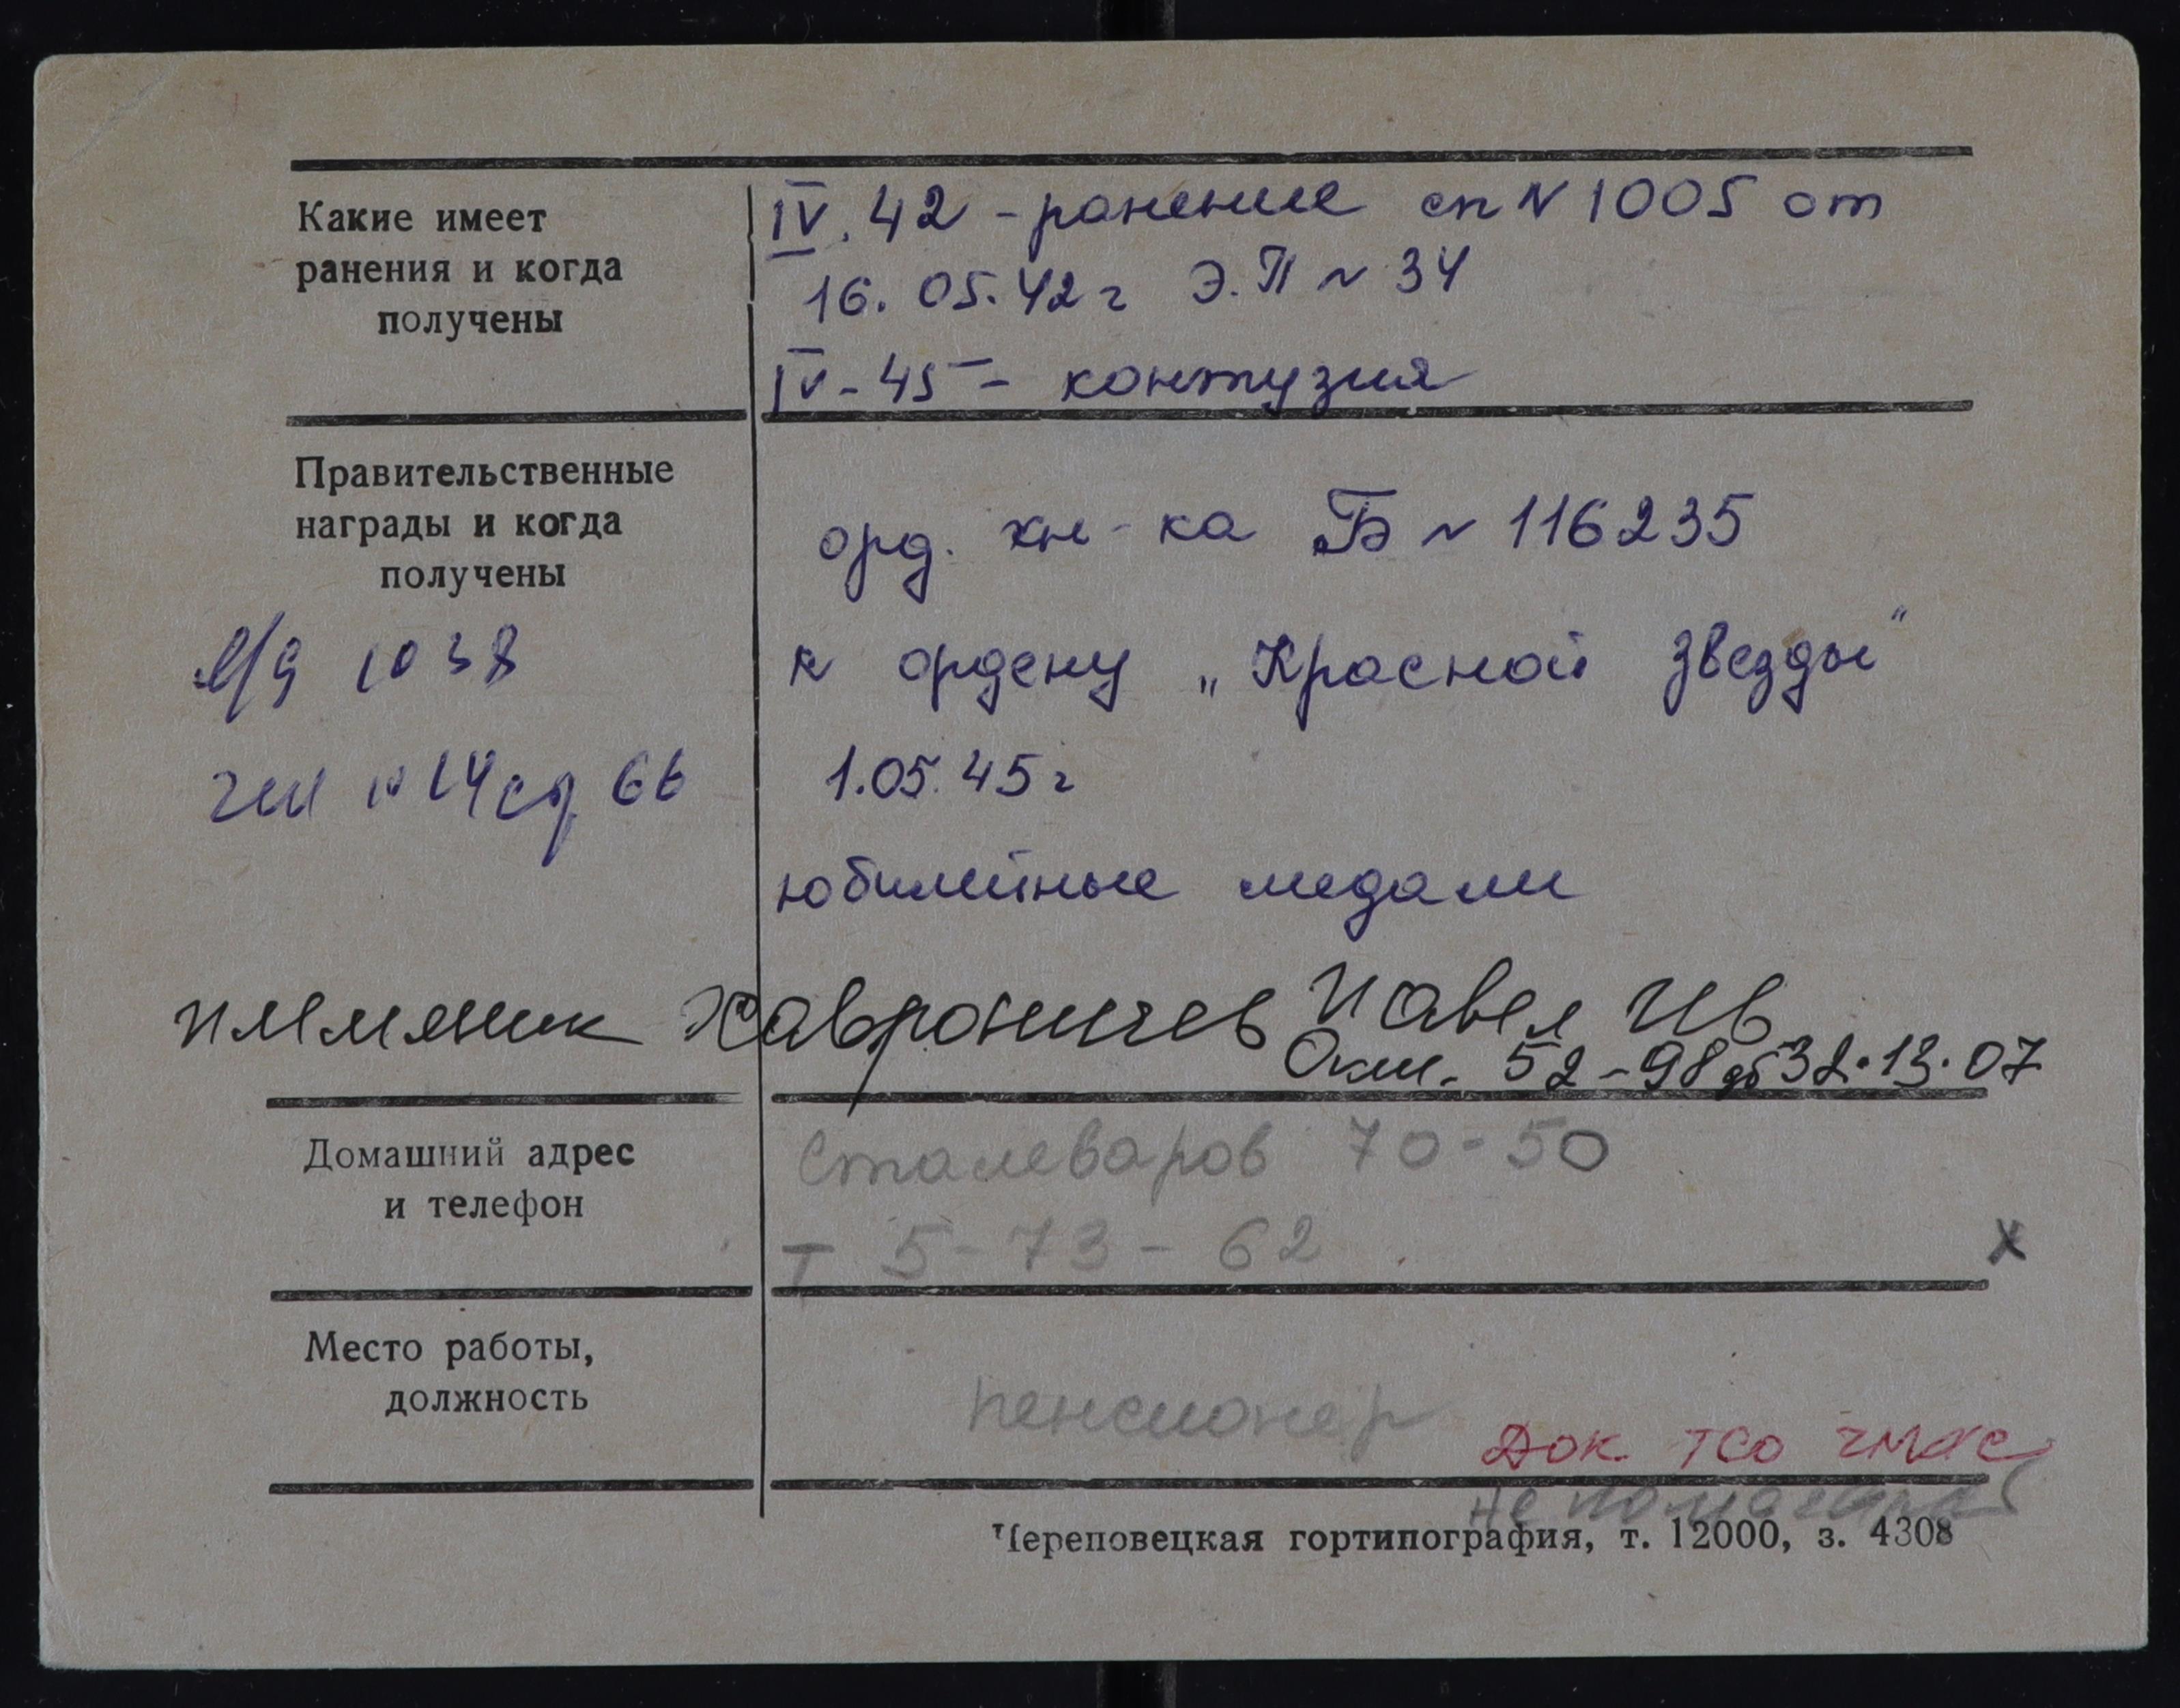 Какие имеет
ранения и когда
получены
IV. 42 - ранение сп N 1005 от
16. 05. 42 г Э. П N 34
IV - 45 - контузия
Правительственные
награды и когда
получены
орд. кн-ка Б N 116235
к ордену „Красной Звезды"
1.05.45 г
юбилейные медали
1038
66
племяник Хаврошичев Павел Ив
Окт. 52-98 32.13.07
Домашний адрес
и телефон
Сталеваров 70-50
Т 5-73-62
х
Место работы,
должность
пенсионер
Док ТСО
не
Череповецкая гортипография, т. 12000, з. 4308